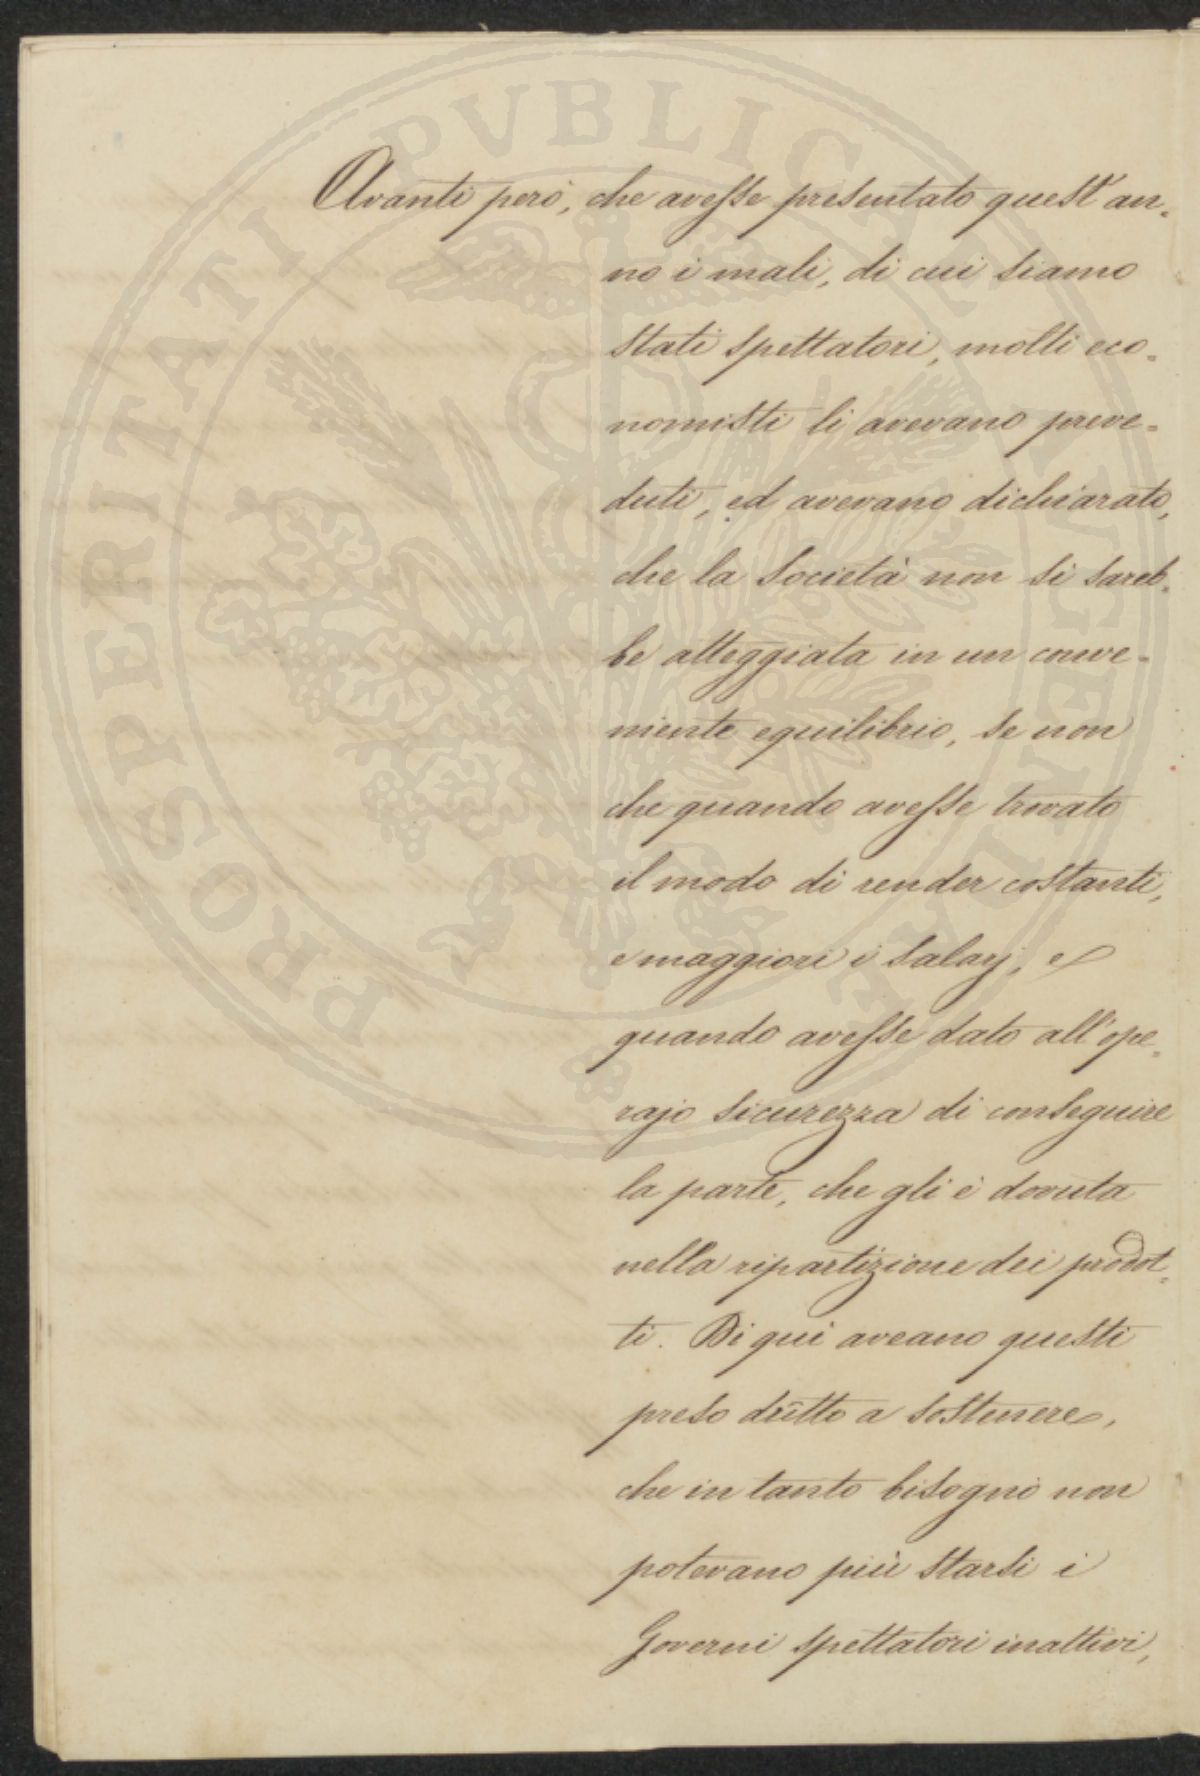 PROSPERITATI PVBLICAE AVGENDAE
Avanti però, che avesse presentato quest'an=
no i mali, di cui siamo
stati spettatori, molti eco=
nomisti li avevano preve=
duti, ed avevano dichiarato,
che la Società non si sareb=
be atteggiata in un conve=
niente equilibrio, se non
che quando avesse trovato
il modo di render costanti,
e maggiori i salarj, e
quando avesse dato all'ope=
rajo sicurezza di conseguire
la parte, che gli è dovuta
nella ripartizione dei prodot=
ti. Di qui aveano questi
preso dritto a sostenere,
che in tanto bisogno non
potevano più starsi i
Governi spettatori inattivi,